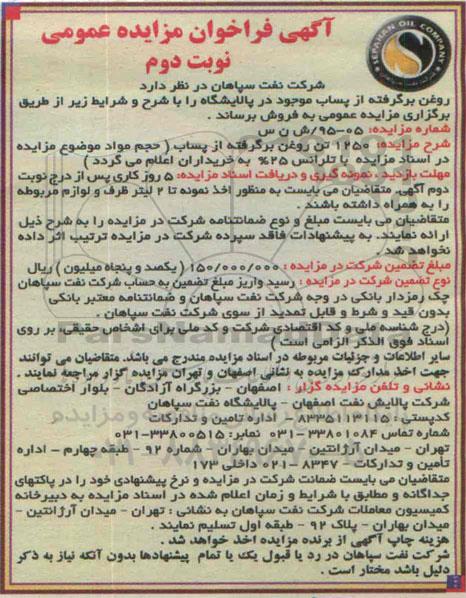 SEPAHAN OIL COMPANY
شرکت نفت سپاهان
آگهی فراخوان مزایده عمومی
نوبت دوم
شرکت نفت سپاهان در نظر دارد
روغن برگرفته از پساب موجود در پالایشگاه را با شرح و شرایط زیر از طریق
برگزاری مزایده عمومی به فروش برساند .
شماره مزایده: ۰۵-۹۵/ش ن س
شرح مزایده: ۱۲۵۰ تن روغن برگرفته از پساب ( حجم مواد موضوع مزایده
در اسناد مزایده با تلرانس ۲۵% به خریداران اعلام می گردد )
مهلت بازدید ، نمونه گیری و دریافت اسناد مزایده: ۵ روز کاری پس از درج نوبت
دوم آگهی. متقاضیان می بایست به منظور اخذ نمونه تا ۲ لیتر ظرف و لوازم مربوطه
را به همراه داشته باشند .
متقاضیان می بایست مبلغ و نوع ضمانتنامه شرکت در مزایده را به شرح ذیل
ارائه نمایند. به پیشنهادات فاقد سپرده شرکت در مزایده ترتیب اثر داده
نخواهد شد .
مبلغ تضمین شرکت در مزایده : ۱۵۰/۰۰۰/۰۰۰ ( یکصد و پنجاه میلیون ) ریال
نوع تضمین شرکت در مزایده : رسید واریز مبلغ تضمین به حساب شرکت نفت سپاهان
چک رمزدار بانکی در وجه شرکت نفت سپاهان و ضمانتنامه معتبر بانکی
بدون قید و شرط و قابل تمدید از سوی شرکت نفت سپاهان .
(درج شناسه ملی و کد اقتصادی شرکت و کد ملی برای اشخاص حقیقی بر روی
اسناد فوق الذکر الزامی است )
سایر اطلاعات و جزئیات مربوطه در اسناد مزایده مندرج می باشد. متقاضیان می توانند
جهت اخذ مدارک مزایده به نشانی اصفهان و تهران مزایده گزار مراجعه نمایند .
نشانی و تلفن مزایده گزار : اصفهان - بزرگراه آزادگان - بلوار اختصاصی
شرکت پالایش نفت اصفهان - پالایشگاه نفت سپاهان
کدپستی : ۸۳۳۵۱۱۳۱۱۵ - اداره تامین و تدارکات
شماره تماس ۳۳۸۰۱۰۸۴-۰۳۱ نمابر: ۳۳۸۰۰۵۱۵-۰۳۱
تهران - میدان آرژانتین - میدان بهاران - شماره ۹۲ - طبقه چهارم - اداره
تأمین و تدارکات- ۸۳۴۷-۰۲۱ داخلی ۱۷۳
متقاضیان می بایست ضمانت شرکت در مزایده و نرخ پیشنهادی خود را در پاکتهای
جداگانه و مطابق با شرایط و زمان اعلام شده در اسناد مزایده به دبیرخانه
کمیسیون معاملات شرکت نفت سپاهان به نشانی : تهران - میدان آرژانتین -
میدان بهاران - پلاک ۹۲ - طبقه اول تسلیم نمایند .
هزینه چاپ آگهی از برنده مزایده اخذ خواهد شد .
شرکت نفت سپاهان در رد یا قبول یک یا تمام پیشنهادها بدون آنکه نیاز به ذکر
دلیل باشد مختار است .